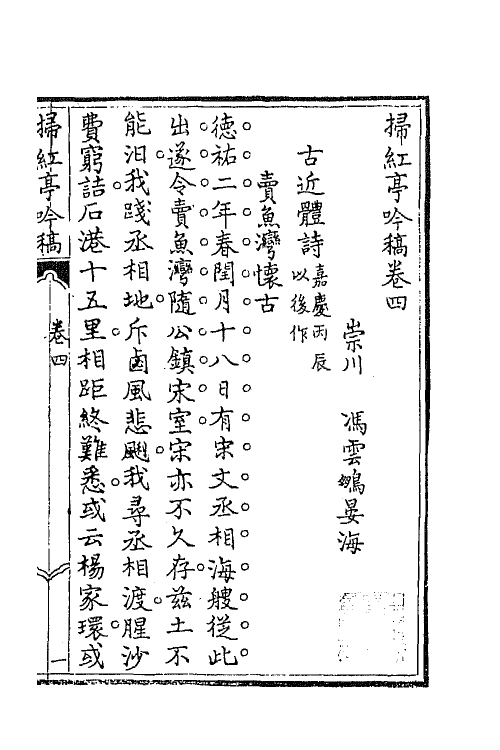 掃紅亭吟稿卷四
崇川 馮雲鵬晏海
古近體詩嘉慶丙辰以後作
賣魚灣懷古
德祐二年春閏月十八日有宋文丞相海艘從此
出遂令賣魚灣隨公鎮宋室宋亦不久存茲土不
能汨我踐丞相地斥鹵風悲颲我尋丞相渡腥沙
費窮詰石港十五里相距終難悉或云楊家環或
掃紅亭吟稿 卷四 一